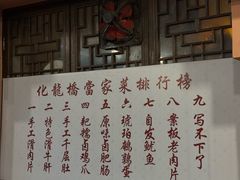 化龍橋當家菜排行榜
一手工滑肉片
二特色滑牛肝
三手工千层肚
四耙糯卤鸡爪
五原味卤肥肠
六琥珀鹌鹑蛋
七自发鱿鱼
八案板老肉片
九写不下了